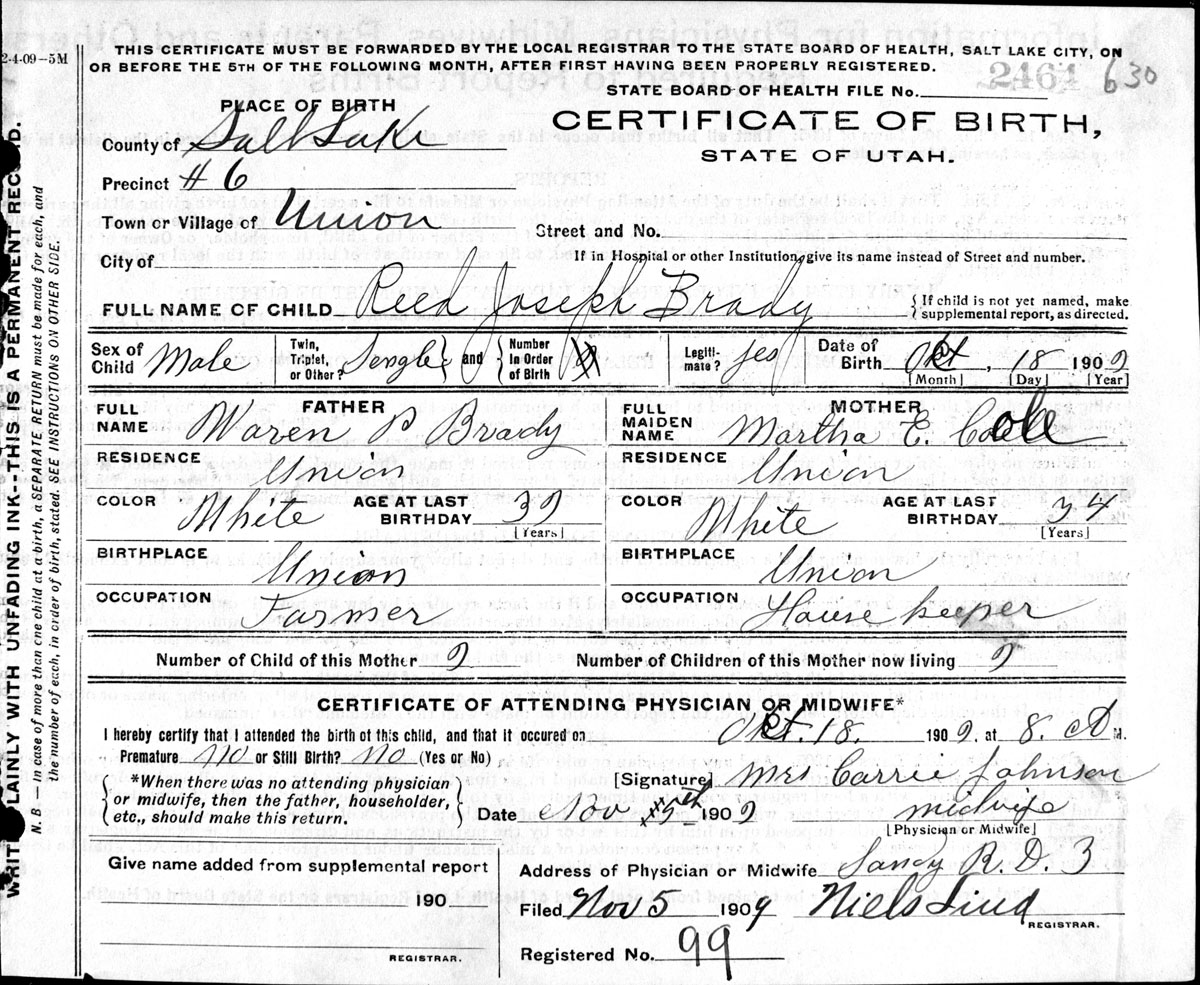 2-4-09-5M
THIS CERTIFICATE MUST BE FORWARDED BY THE LOCAL REGISTRAR TO THE STATE BOARD OF HEALTH, SALT LAKE CITY, ON
OR BEFORE THE 5TH OF THE FOLLOWING MONTH, AFTER FIRST HAVING BEEN PROPERLY REGISTERED.
2461 630
STATE BOARD OF HEALTH FILE No.
PLACE OF BIRTH
CERTIFICATE OF BIRTH,
STATE OF UTAH.
County of Salt Lake
Precinct # 6
Town or Village of Union
Street and No.
City of
If in Hospital or other Institution, give its name instead of Street and number.
FULL NAME OF CHILD Reed Joseph Brady
{If child is not yet named, make
supplemental report, as directed.
Sex of Child Male
Twin, Triplet, or Other? Sengle } and { Number in Order of Birth
Legiti-mate? yes
Date of Birth Oct, 18 1909
[Month] [Day] [Year]
FATHER
FULL NAME Waren P Brady
RESIDENCE Union
COLOR White AGE AT LAST BIRTHDAY 39
[Years]
BIRTHPLACE Union
OCCUPATION Farmer
MOTHER
FULL MAIDEN NAME Martha E. Cole
RESIDENCE Union
COLOR White AGE AT LAST BIRTHDAY 34
[Years]
BIRTHPLACE Union
OCCUPATION House keeper
Number of Child of this Mother 9 Number of Children of this Mother now living 9
CERTIFICATE OF ATTENDING PHYSICIAN OR MIDWIFE*
I hereby certify that I attended the birth of this child, and that it occured on Oct. 18. 1909. at 8. A M.
Premature No or Still Birth? No (Yes or No)
*When there was no attending physician
or midwife, then the father, householder,
etc., should make this return.
[Signature] Mrs Carrie Johnson
Date Nov 1909 midwife
[Physician or Midwife]
Give name added from supplemental report
190
REGISTRAR.
Address of Physician or Midwife Sandy R. D. 3
Filed Nov 5 1909 Niels Lind
REGISTRAR.
Registered No. 99
WRITE PLAINLY WITH UNFADING INK--THIS IS A PERMANENT RECORD.
N. B.—In case of more than one child at a birth, a SEPARATE RETURN must be made for each, and
the number of each, in order of birth, stated. SEE INSTRUCTIONS ON OTHER SIDE.